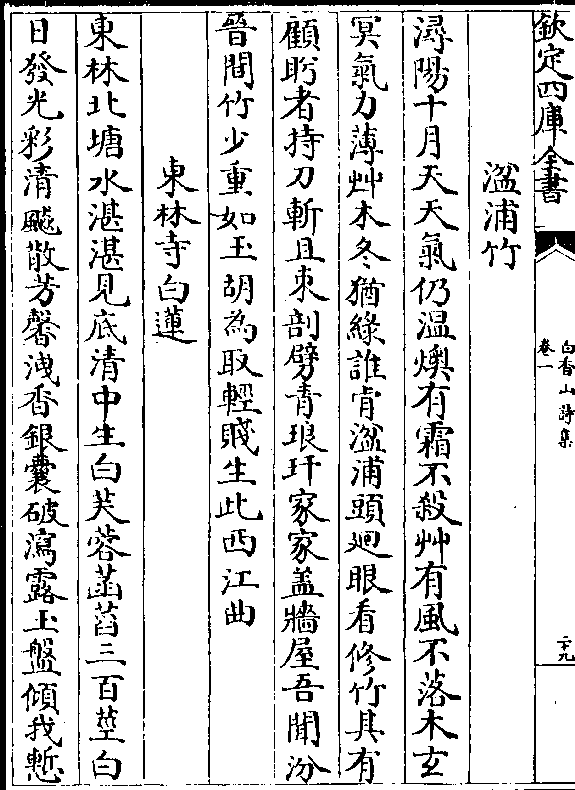 欽定四庫全書
白香山詩集
卷一
二十九
湓浦竹
潯陽十月天天氣仍温燠有霜不殺艸有風不落木玄
冥氣力薄艸木冬猶緑誰肯湓浦頭廻眼看修竹其有
顧盻者持刀斬且束剖劈青琅玕家家盖牆屋吾聞汾
晉間竹少重如玉胡為取輕賤生此西江曲
東林寺白蓮
東林北塘水湛湛見底清中生白芙蓉菡萏三百莖白
日發光彩清飇散芳馨洩香銀囊破瀉露玉盤傾我慙